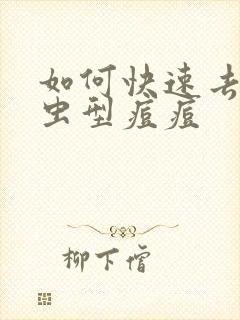 如何快速去
虫型痘痘
柳下僧